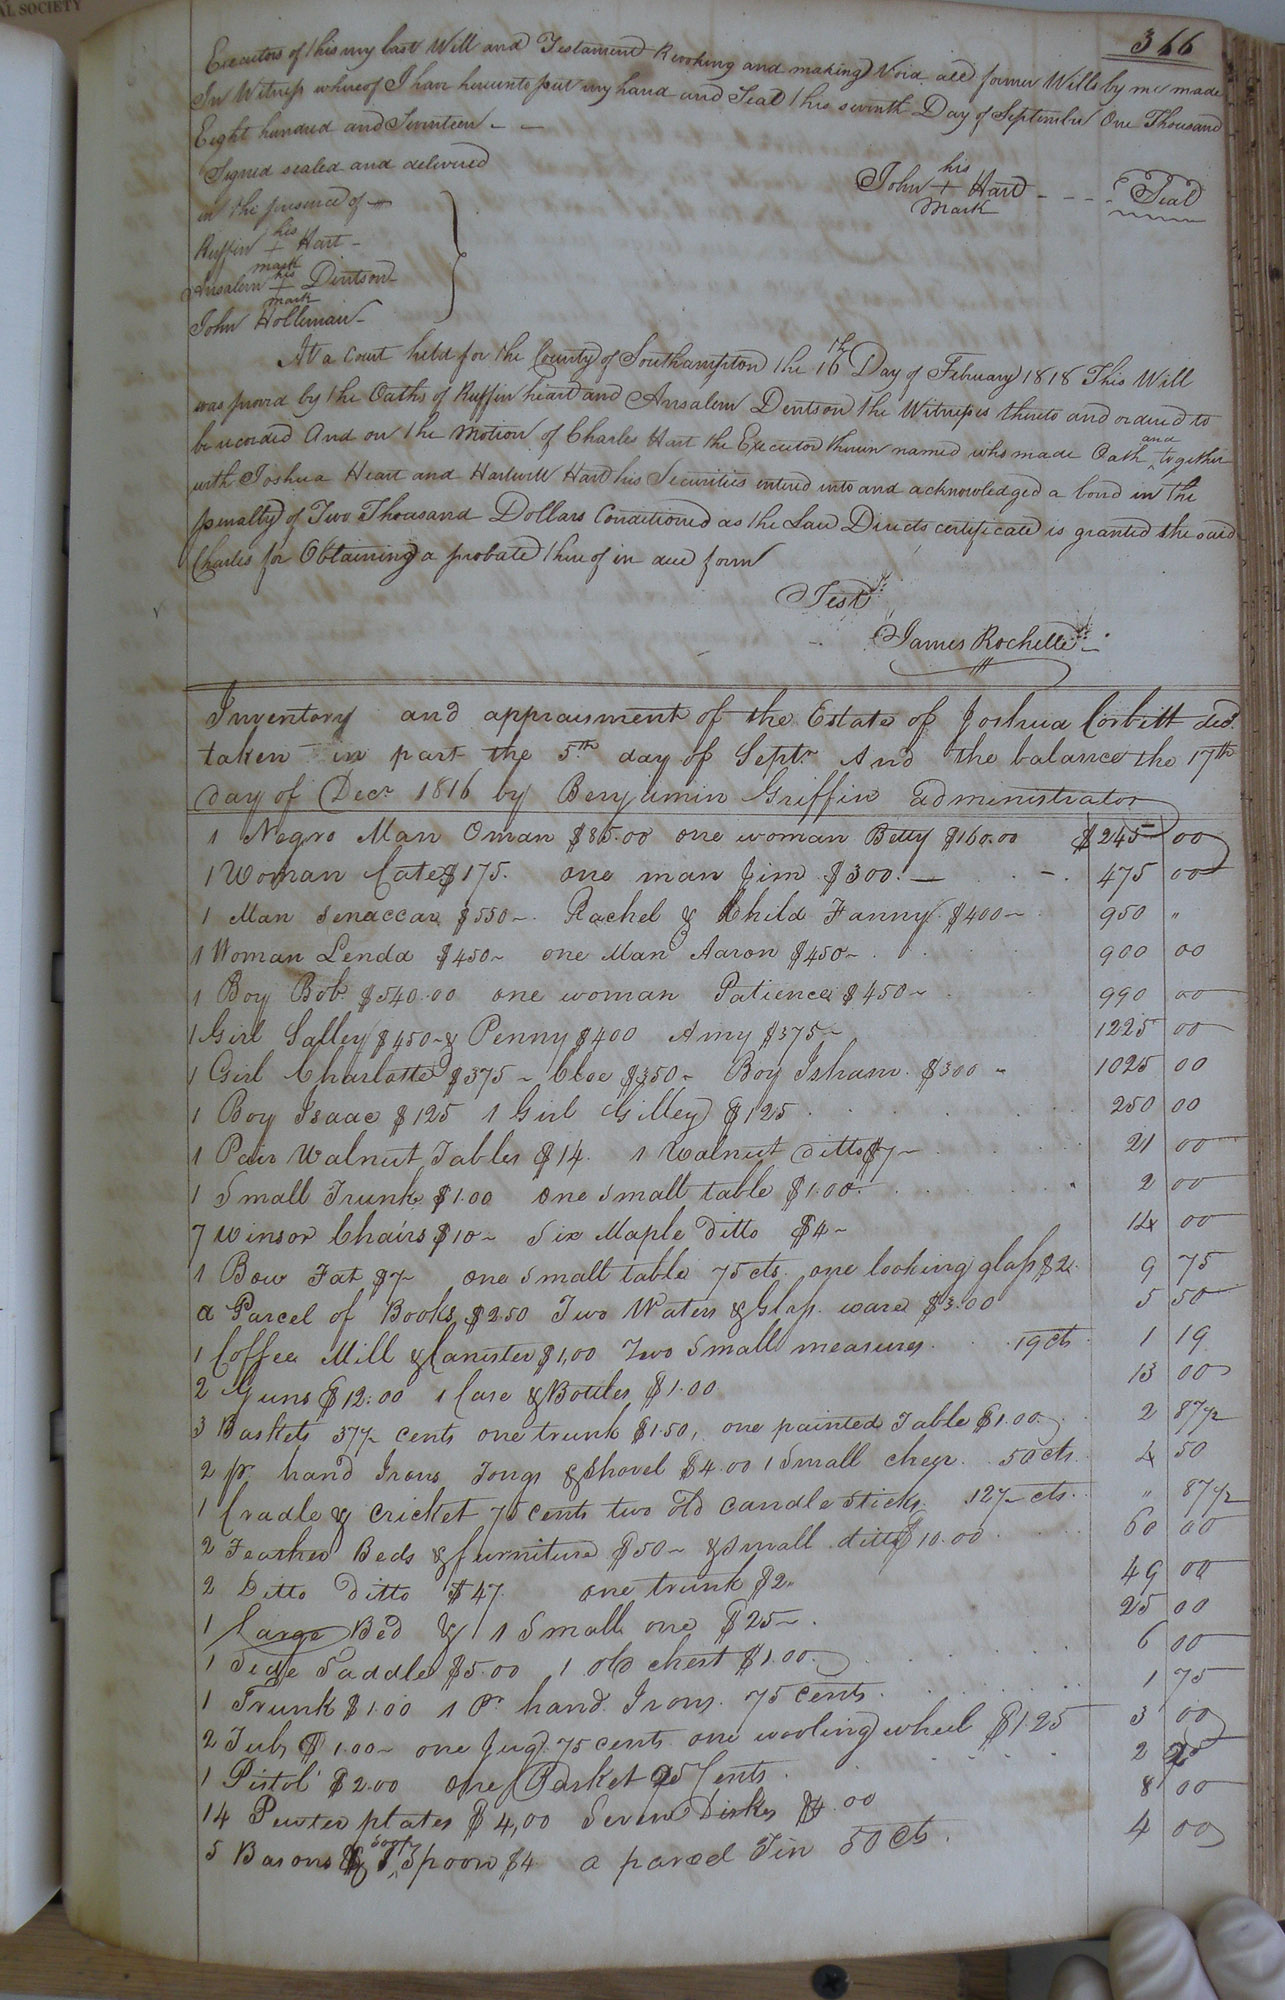 AL SOCIETY
366
Executors of this my last Will and Testament Revoking and making Void all former Wills by me made
In Witness whereof I have hereunto put my hand and Seal this seventh Day of September One Thousand
Eight hundred and Seventeen - -
Signed sealed and delivered
in the presence of
his
John + Hart - - - Seal
Mark
his
Ruffin + Hart -
mark
his
Ansalem + Dentson
mark
John Holliman -
At a Court held for the County of Southampton the 16th Day of February 1818 This Will
was proved by the Oaths of Ruffin heart and Ansalem Dentson the Witnesses thereto and ordered to
be recorded And on the Motion of Charles Hart the Executor therein named who made Oath and together
with Joshua Heart and Hartwell Hart his Securities entered into and acknowledged a bond in the
penalty of Two Thousand Dollars Conditioned as the Law Directs certificate is granted the said
Charles for Obtaining a probate thereof in due form
Test
James Rochelle
Inventory and appraisment of the Estate of Joshua Corbitt decd.
taken in part the 5th day of Septr And the balance the 17th
day of Decr 1816 by Benjamin Griffin administrator
1 Negro Man Oman $85.00 one woman Betty $160.00 $245 00
1 Woman Cate $175. one man Jim $300. - 475 00
1 Man Senaccar $550 - Rachel & Child Fanny $400 - 950 "
1 Woman Lenda $450 - one Man Aaron $450 - 900 00
1 Boy Bob $540.00 one woman Patience $450 - 990 00
1 Girl Salley $450 - & Penny $400 Amy $375 - 1225 00
1 Girl Charlotte $375 - Cloe $350 - Boy Isham $300 - 1025 00
1 Boy Isaac $125 1 Girl Gilley $125 250 00
1 Pair Walnut Tables $14. 1 Walnut Ditto $7 - 21 00
1 Small Trunk $1.00 one small table $1.00 2 00
7 Winsor Chairs $10 - Six Maple Ditto $4 - 14 00
1 Bow Fat $7 one small table 75 cts. one looking glass $2 9 75
a Parcel of Books $2.50 Two Waters & Glass ware $3.00 5 50
1 Coffee Mill & Canister $1,00 Two Small measures 19 cts 1 19
2 Guns $12.00 1 Case & Bottles $1.00 13 00
3 Baskets 37½ cents one trunk $1.50, one painted Table $1.00 2 87½
2 pr. hand Irons Tongs & Shovel $4.00 1 Small chesr 50 cts. 4 50
1 Cradle & Cricket 75 cents two old candle sticks 12½ cts " 87½
2 Feather Beds & furniture $50 - & small ditto $10.00 60 00
2 Ditto Ditto $47 one trunk $2 49 00
1 Large Bed & 1 Small one $25 - 25 00
1 Side Saddle $5.00 1 old chest $1.00 6 00
1 Trunk $1.00 1 Pr. hand Irons 75 cents 1 75
2 Tubs $1.00 - one Jug 75 cents one wooling wheel $1.25 3 00
1 Pistol $2.00 one Basket 25 Cents 2 25
14 Pewter plates $4,00 Seven Dishes $4.00 8 00
5 Basons & 1 Soop Spoon $4 a parcel Tin 50 cts. 4 00